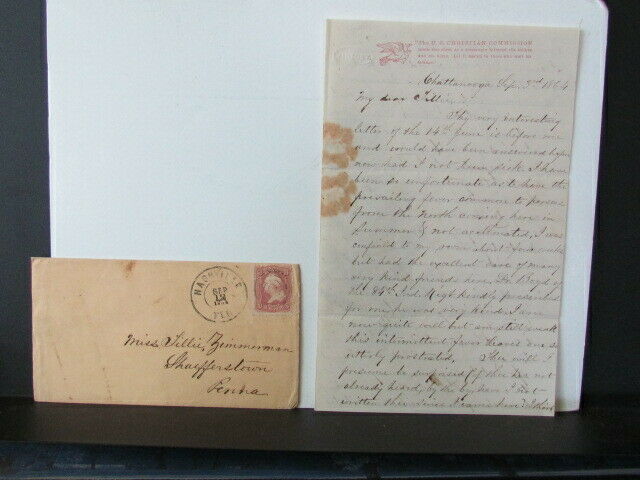 The U. S. CHRISTIAN COMMISSION
sends this sheet as a messenger between the soldier
and his home. Let it hasten to those who wait for
tidings.
Chattanooga Sep. 3rd 1864
My dear Tillie,
Thy very interesting
letter of the 14th June is before me
and would have been answered before
now had I not been sick. I have
been so unfortunate as to have the
prevailing fever common to persons
from the North coming here in
Summer & not acclimated, I was
confined to my room about four weeks
but had the excellent care of many
very kind friends here. Dr. Boyd of
the 84th Ind. Reg. kindly prescribed
for me he was very kind. I am
now quite well but am still weak
this intermittent fever leaves one so
utterly prostrated. This will I
presume be surprised if thee has not
already heard, by the
written thee since I came here
NASHVILLE
SEP
TEN
Miss Tillie Zimmerman
Shaefferstown
Penna